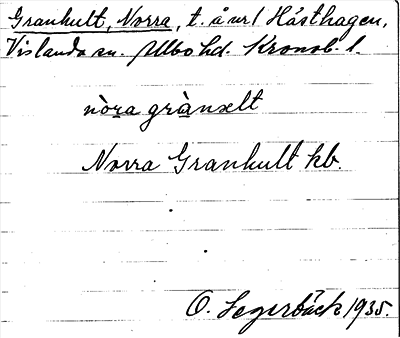 Granhult, Norra, t. å nr 1 Hästhagen,
Vislanda sn. Allbo hd. Kronob. l.
nòra grànxelt
Norra Granhult hb.
O. Segerbäck 1935.